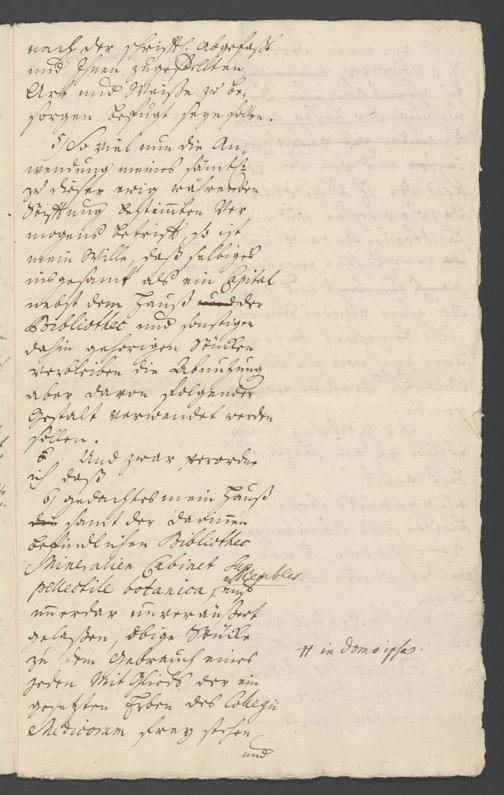 nach der schrifftl. abgefaßt
und Ihnen zugestellten
Art und Weiße zu be-
sorgen befugt seyn sollen.
5) So viel nun die An-
wendung meines sämtl.
zu dieser ewig währenden
Stifftung bestimten Ver
mögens betrifft, so ist
mein Wille, daß selbiges
insgesamt als ein Capital
nebst dem Hauß und der
Bibliothec und sonstigen
dahin gehörigen Stücken
verbleiben die Abnutzung
aber davon folgender
Gestalt verwendet werden
sollen.
6 Und zwar verordne
ich daß
6) gedachtes mein Hauß
samt der darinnen
befindlichen Bibliothec
Mineralien Cabinet Sup
pellectile botanica, Meubles und
immerdar unveräußert
gelaßen, obige Stücke
zu dem Gebrauch eines
jeden Mit Glieds der ein
gesetzten Erben des Collegii
Medicorum frey stehen,
und
# in domo ipsa.